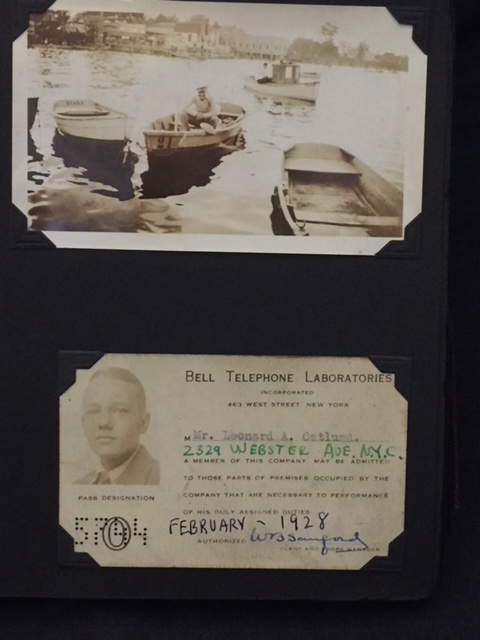 21
BELL TELEPHONE LABORATORIES
INCORPORATED
463 WEST STREET, NEW YORK
Mr. Leonard A.
2329 WEBSTER AVE. N.Y.C.
A MEMBER OF THIS COMPANY, MAY BE ADMITTED
TO THOSE PARTS OF PREMISES OCCUPIED BY THE
COMPANY THAT ARE NECESSARY TO PERFORMANCE
OF HIS DULY ASSIGNED DUTIES
PASS DESIGNATION
FEBRUARY - 1928
AUTHORIZED
PLANT AND MANAGER